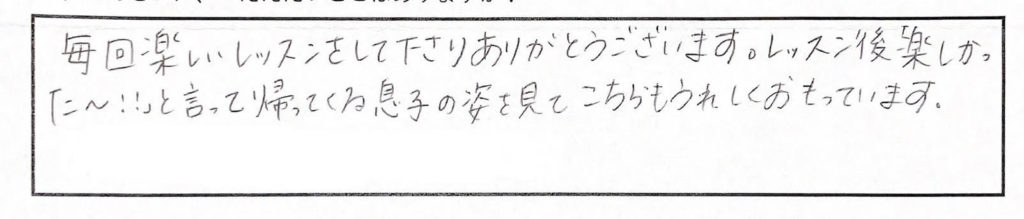 毎回楽しいレッスンをして下さりありがとうございます。レッスン後「楽しかっ
た～!!」と言って帰ってくる息子の姿を見てこちらもうれしくおもっています。